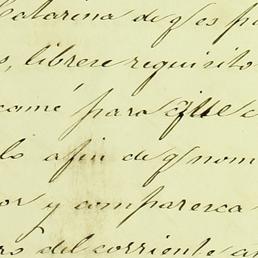 Catarina de q/ es pa
s, librese requisito
come para que c
lo afin de q/ nom
or y comparesca
rs del corriente añ